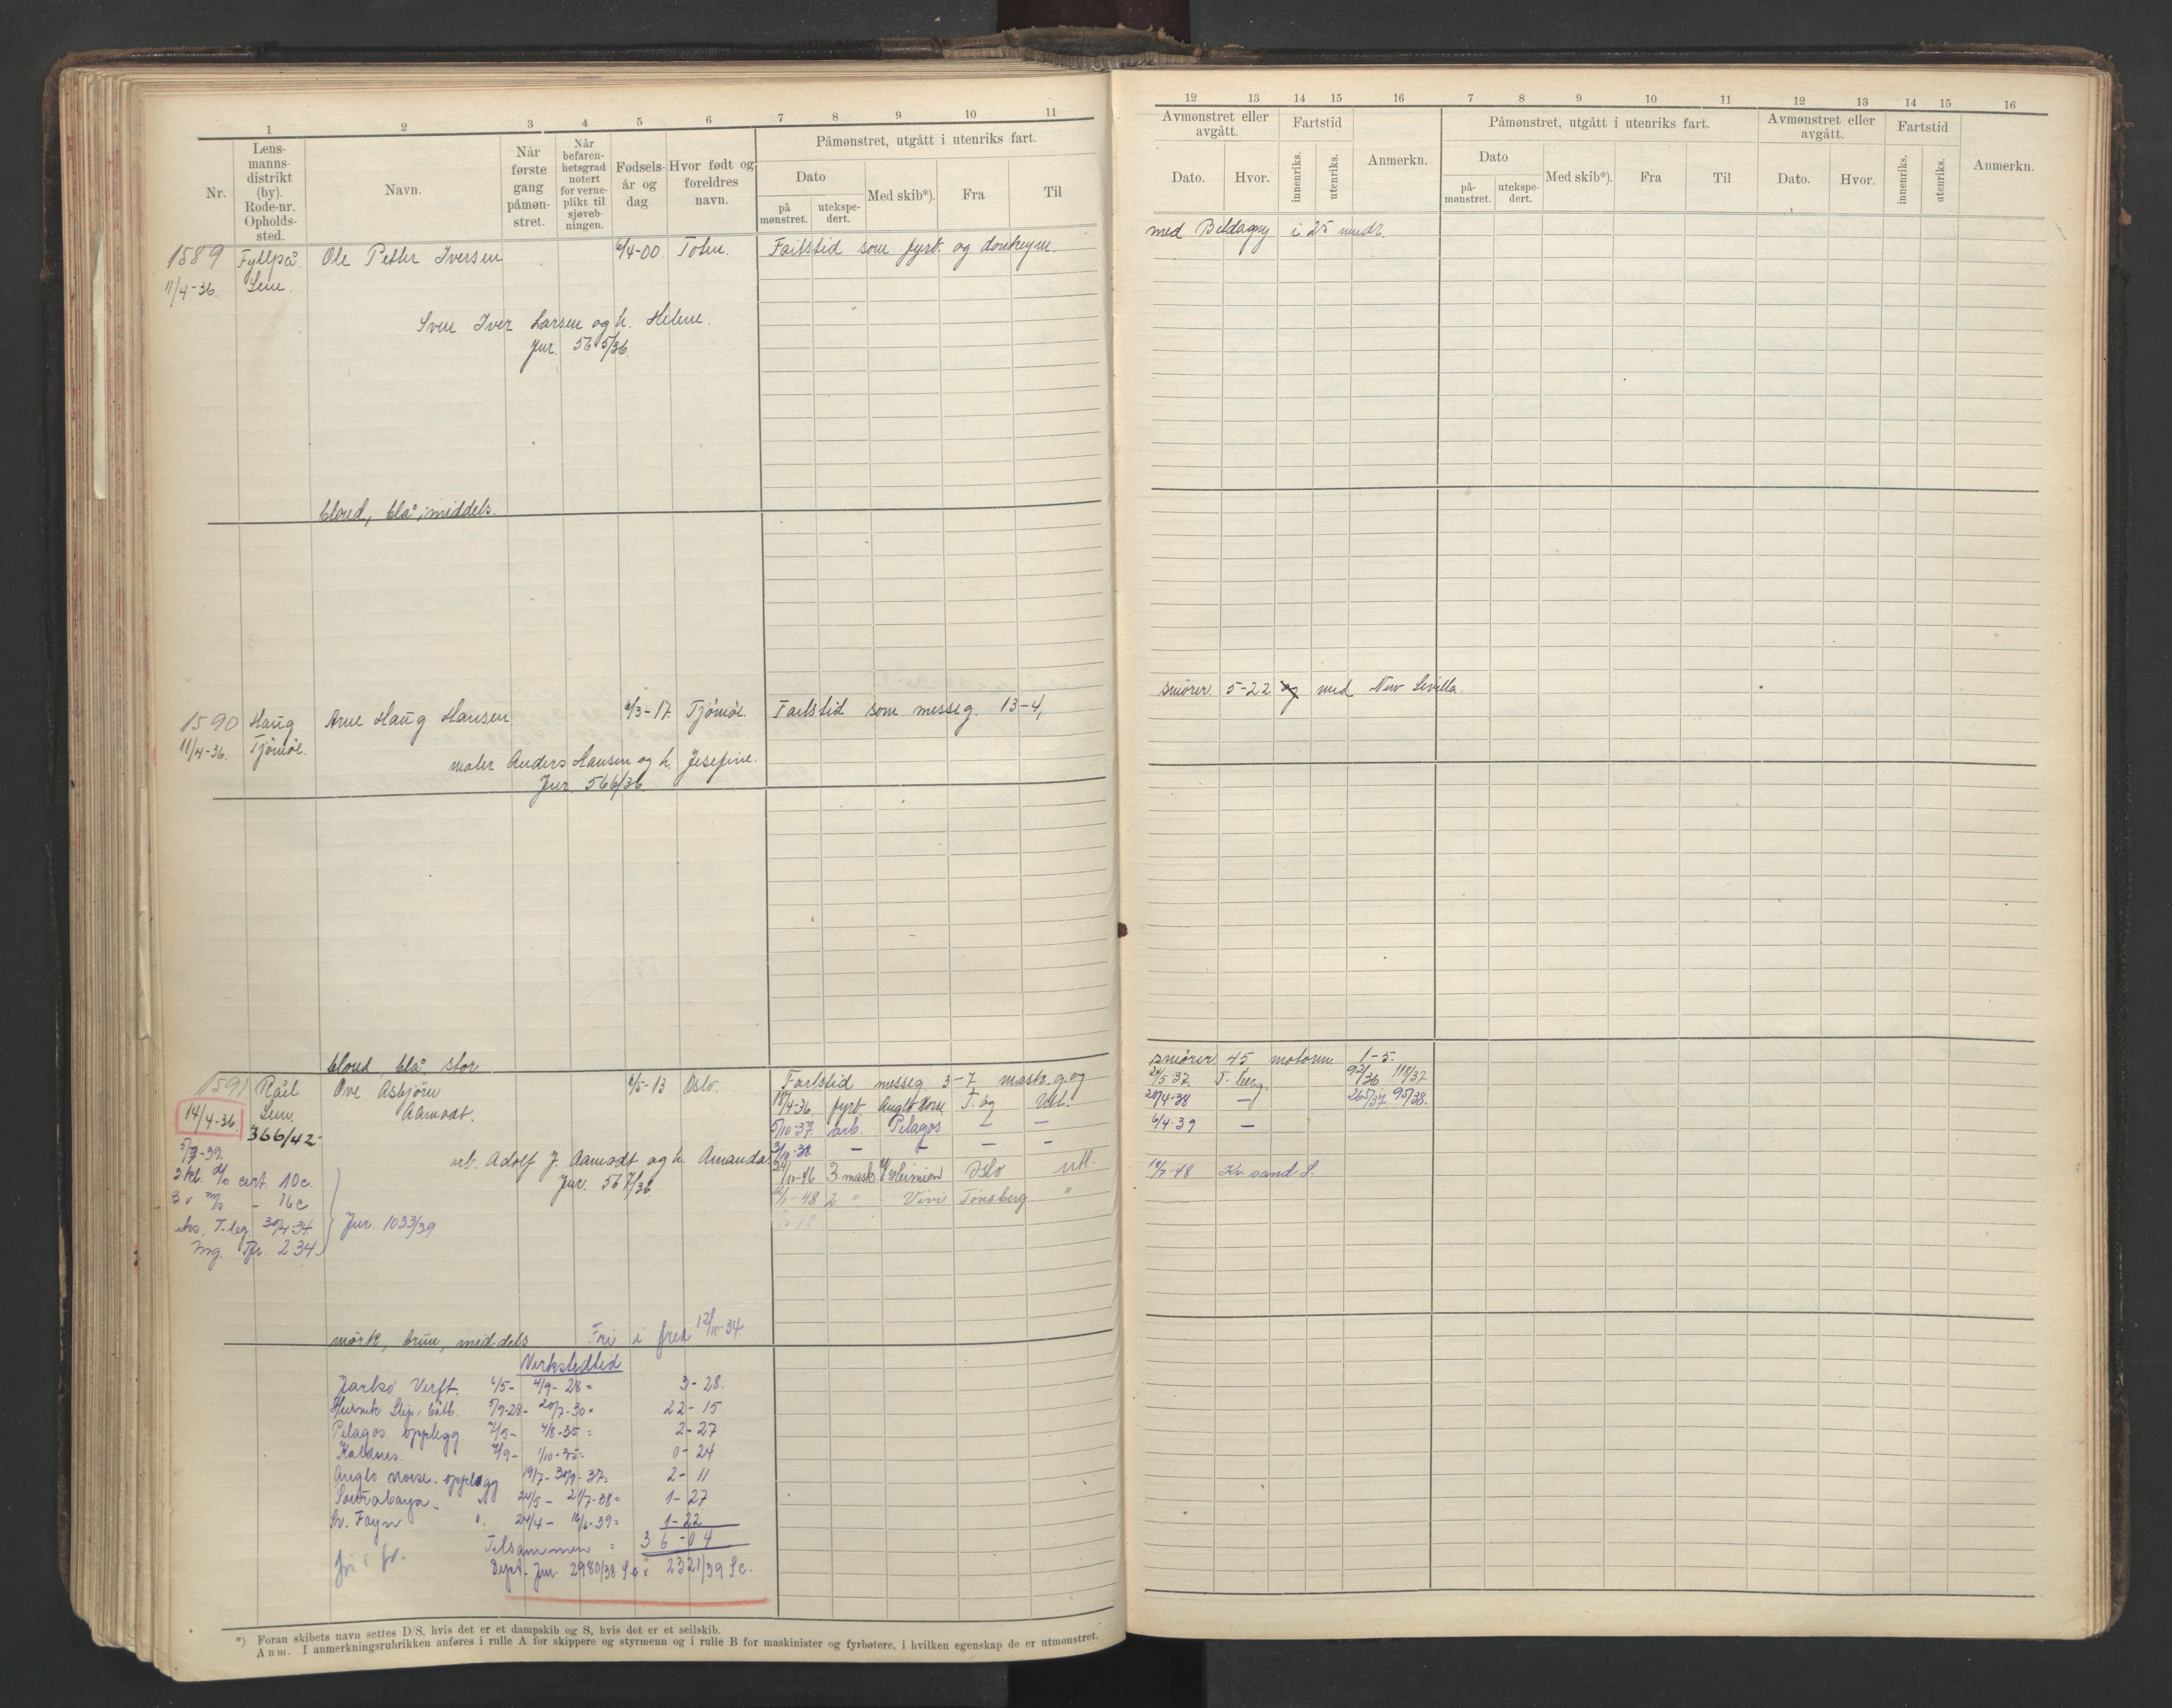 1 2 3 4 5 6 7 8 9 10 11
Nr.
Lens-
manns-
distrikt
(by).
Rode-nr.
Opholds-
sted.
Navn.
Når
første
gang
påmøn-
stret.
Når
befaren-
hetsgrad
notert
for verne-
plikt til
sjøveb-
ningen.
Fødsels-
år og
dag
Hvor født og
foreldres
navn.
Påmønstret, utgått i utenriks fart.
Dato
på
mønstret.
utekspe-
dert.
Med skib*).
Fra
Til
1589 Ole Petter Iversen 6/4-00. Toten. Fartstid som fyrb. og donkeym.
11/4-36. Sem.
Iver Larsen og h. Helene.
Jur. 565/36.
blond, blå, middels.
1590 Haug Arne Haug Hansen 6/3-17. Tjömöe. Fartstid som messeg. 13-4,
11/4-36. Tjömöe.
maler Anders Hansen og h. Josefine.
Jur. 566/36
blond, blå, stor
1591 Råel Ove Asbjörn 4/5-13 Oslo. Fartstid messeg. 3-7 mask. g. og
14/4-36. Sem. Aamodt. 18/4-36. fyrb. Anglo Norse T.bg Utl.
366/42 5/10-37. arb. Pelagos — —
3/10-38. — — — —
arb. Adolf J. Aamodt og h. Amanda.
3 mask. Oslo utl.
Jur. 567/36.
48 2 " Vivi Tønsberg "
3 kl. d/s cert. 10c.
3 " m/s - 16c
30/4-34. Jur. 1033/39
2-34
mörk, brun, middels Fri i fred 12/10-34
Verkstedtid
Jarlsö Verft. 6/5- 4/9-28= 3-28.
5/9-28- 20/7-30= 22-15
Pelagos opplegg 7/5- 4/8-35= 2-27
Kaldnes. 7/9- 1/10-35= 0-24
Anglo Norse. opplegg 19/7- 30/9-37= 2-11
Sourabaya - " 24/5- 21/7-38= 1-27
Sv. Foyn " 24/4- 16/6-39= 1-22
Tilsammen = 36-04
fri i fr.
Dept. Jur. 2980/38 2321/39
*) Foran skibets navn settes D/S, hvis det er et dampskib og S, hvis det er et seilskib.
Anm. I anmerkningsrubrikken anføres i rulle A for skippere og styrmenn og i rulle B for maskinister og fyrbøtere, i hvilken egenskap de er utmønstret.
12 13 14 15 16 7 8 9 10 11 12 13 14 15 16
Avmønstret eller
avgått.
Dato.
Hvor.
Fartstid
innenriks.
utenriks.
Anmerkn.
Påmønstret, utgått i utenriks fart.
Dato
på-
mønstret.
utekspe-
dert.
Med skib*).
Fra
Til
Avmønstret eller
avgått.
Dato.
Hvor.
Fartstid
innenriks.
utenriks.
Anmerkn.
med Beldagny i 25 mndr.
smörer. 5-22 og med New Sevilla.
smörer. 45 motorm. 1-5.
24/5-37. T.berg. 92/36 118/37
20/4-38 — 265/37 95/38.
6/4-39 —
Kr.sand S.